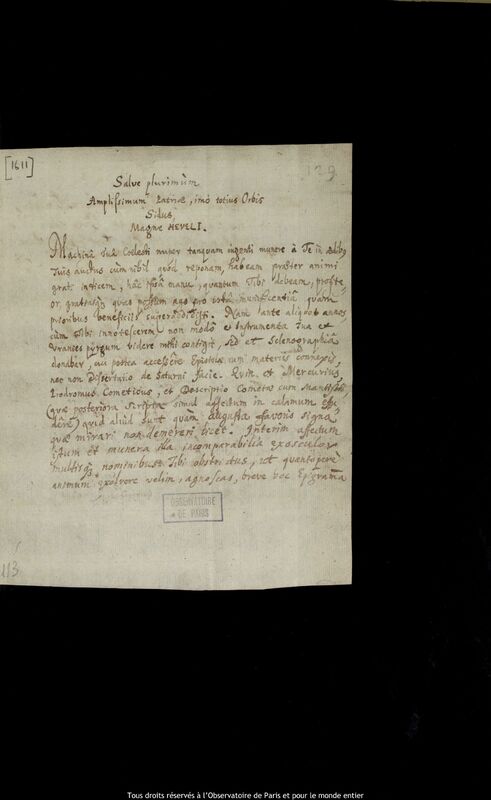 [1611]
129
Salve plurimùm
Amplissimum Patriæ, imò totius Orbis
Sidus,
Magne HEVELI.
Machinâ Tuâ Coelesti nuper tanquam ingenti munere à Te in Ædibus
Tuis auctus cùm nihil quod reponam, habeam præter animi
grati inscitiam, hâc ipsâ manu, quantum Tibi debeam, profite
or, gratiasq; quas possum ago pro istâ munificentiâ quam
prioribus beneficiis superaddidisti. Nam ante aliquot annos
cùm Tibi innotescerem non modò Instrumenta Tua et
Uranies pyrgum videre mihi contigit, sed et Selenographia
donabar, cui postea accessêre Epistolæ cum materiis connexis,
nec non Dissertatio de Saturni facie. Quin et Mercurius,
Prodromus Cometicus, et Descriptio Cometæ cum Mantissa
(quæ posteriora Scripta simul affectum in calamum
dêre) quid aliud sunt quàm augusta favoris signa
quæ mirari non demereri licet. Interim affectum
Tuum et munera illa incomparabilia exosculor
multisq; nominibus Tibi obstrictus, ut quantoperè
animum exolvere velim, agnoscas, breve hoc Epigramma
OBSERVATOIRE
DE PARIS
113
Tous droits réservés à l'Observatoire de Paris et pour le monde entier